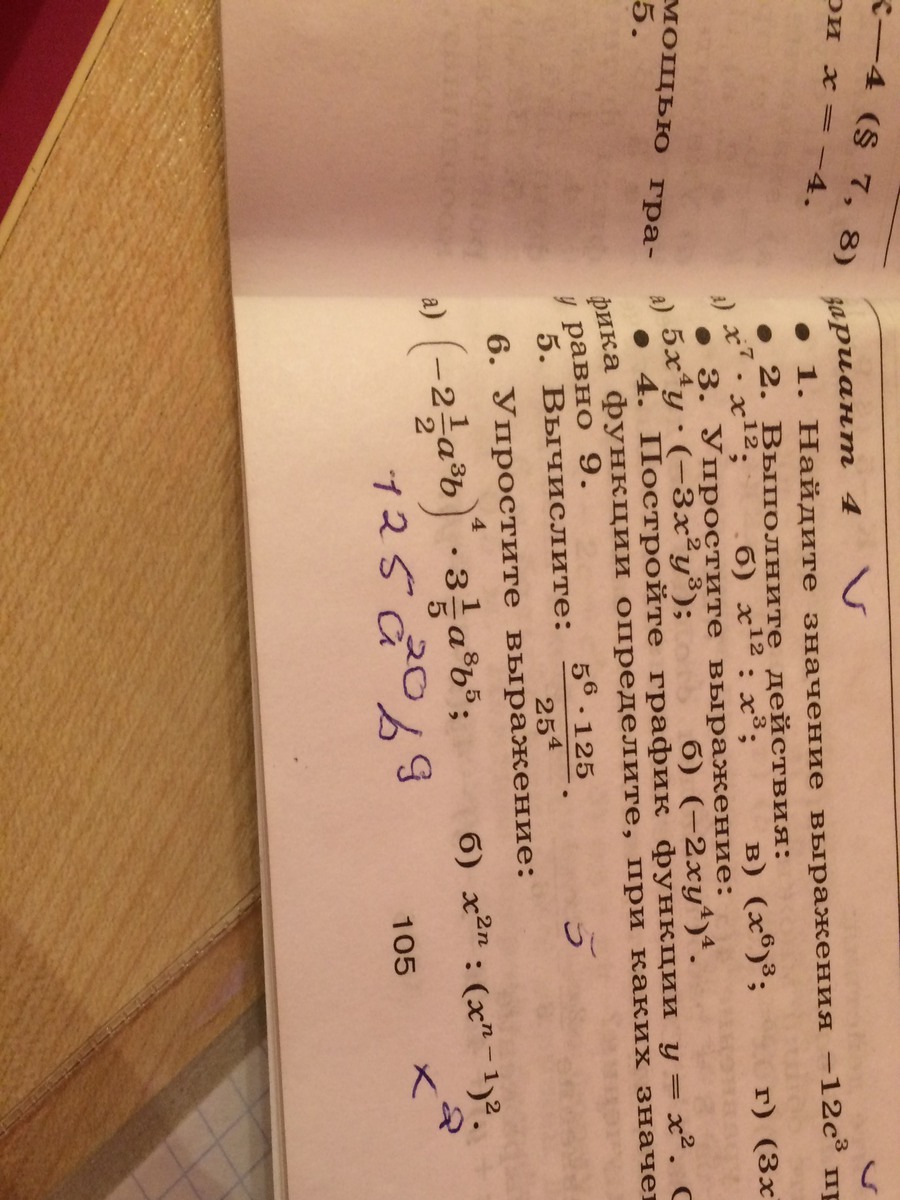 К—4 (§ 7, 8)
ри x = −4.
мощью гра-
5.
Вариант 4
• 1. Найдите значение выражения −12c³ п
• 2. Выполните действия:
а) x⁷ · x¹²; б) x¹² : x³; в) (x⁶)³; г) (3x
• 3. Упростите выражение:
а) 5x⁴y · (−3x²y³); б) (−2xy⁴)⁴.
• 4. Постройте график функции y = x². С
фика функции определите, при каких значен
y равно 9.
5. Вычислите: (5⁶ · 125)/25⁴. 5
6. Упростите выражение:
а) (−2 1/2 a³b)⁴ · 3 1/5 a⁸b⁵; б) x²ⁿ : (xⁿ⁻¹)².
125a²⁰b⁹ x²
105